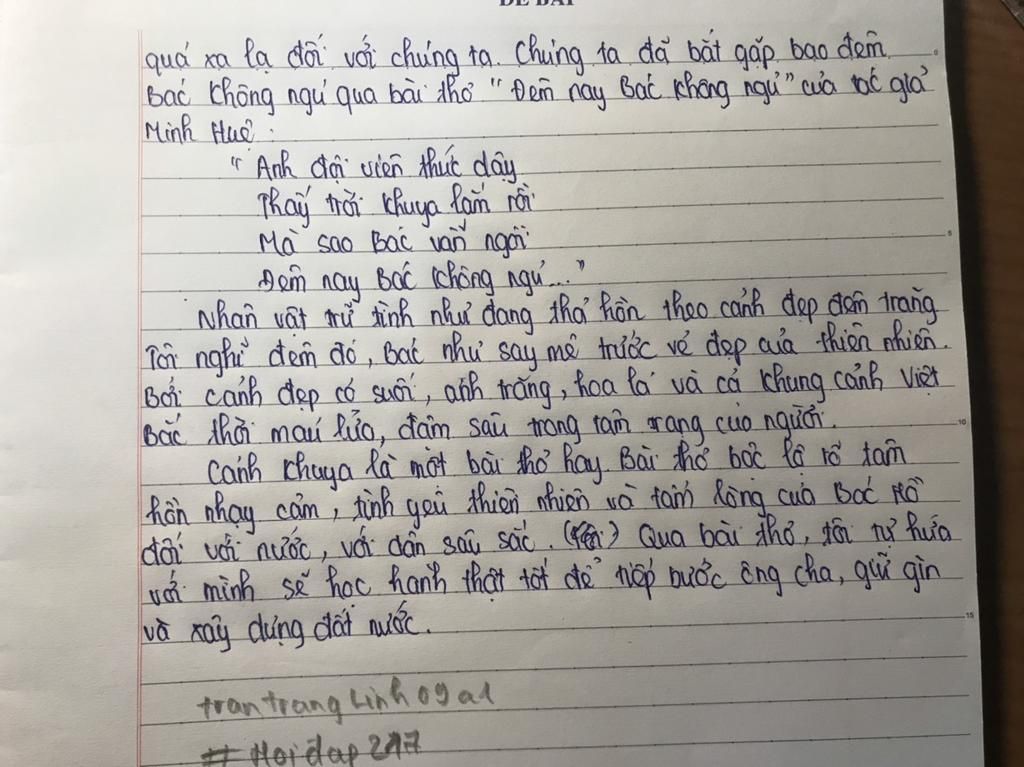 ĐỀ BÀI
quá xa lạ đối với chúng ta. Chúng ta đã bắt gặp bao đêm
Bác không ngủ qua bài thơ "Đêm nay Bác không ngủ" của tác giả
Minh Huệ:
"Anh đội viên thức dậy
Thấy trời khuya lắm rồi
Mà sao Bác vẫn ngồi
Đêm nay Bác không ngủ..."
Nhân vật trữ tình như đang thả hồn theo cảnh đẹp đêm trăng
Tôi nghĩ đêm đó, Bác như say mê trước vẻ đẹp của thiên nhiên.
Bởi cảnh đẹp có suối, ánh trăng, hoa lá và cả khung cảnh Việt
Bắc thời máu lửa, đậm sâu trong tâm trạng của người.
Cảnh khuya là một bài thơ hay. Bài thơ bộc lộ rõ tâm
hồn nhạy cảm, tình yêu thiên nhiên và tấm lòng của Bác Hồ
đối với nước, với dân sâu sắc. Qua bài thơ, tôi tự hứa
với mình sẽ học hành thật tốt để tiếp bước ông cha, giữ gìn
và xây dựng đất nước.
trantrangLinh09a1
# Hoidap247